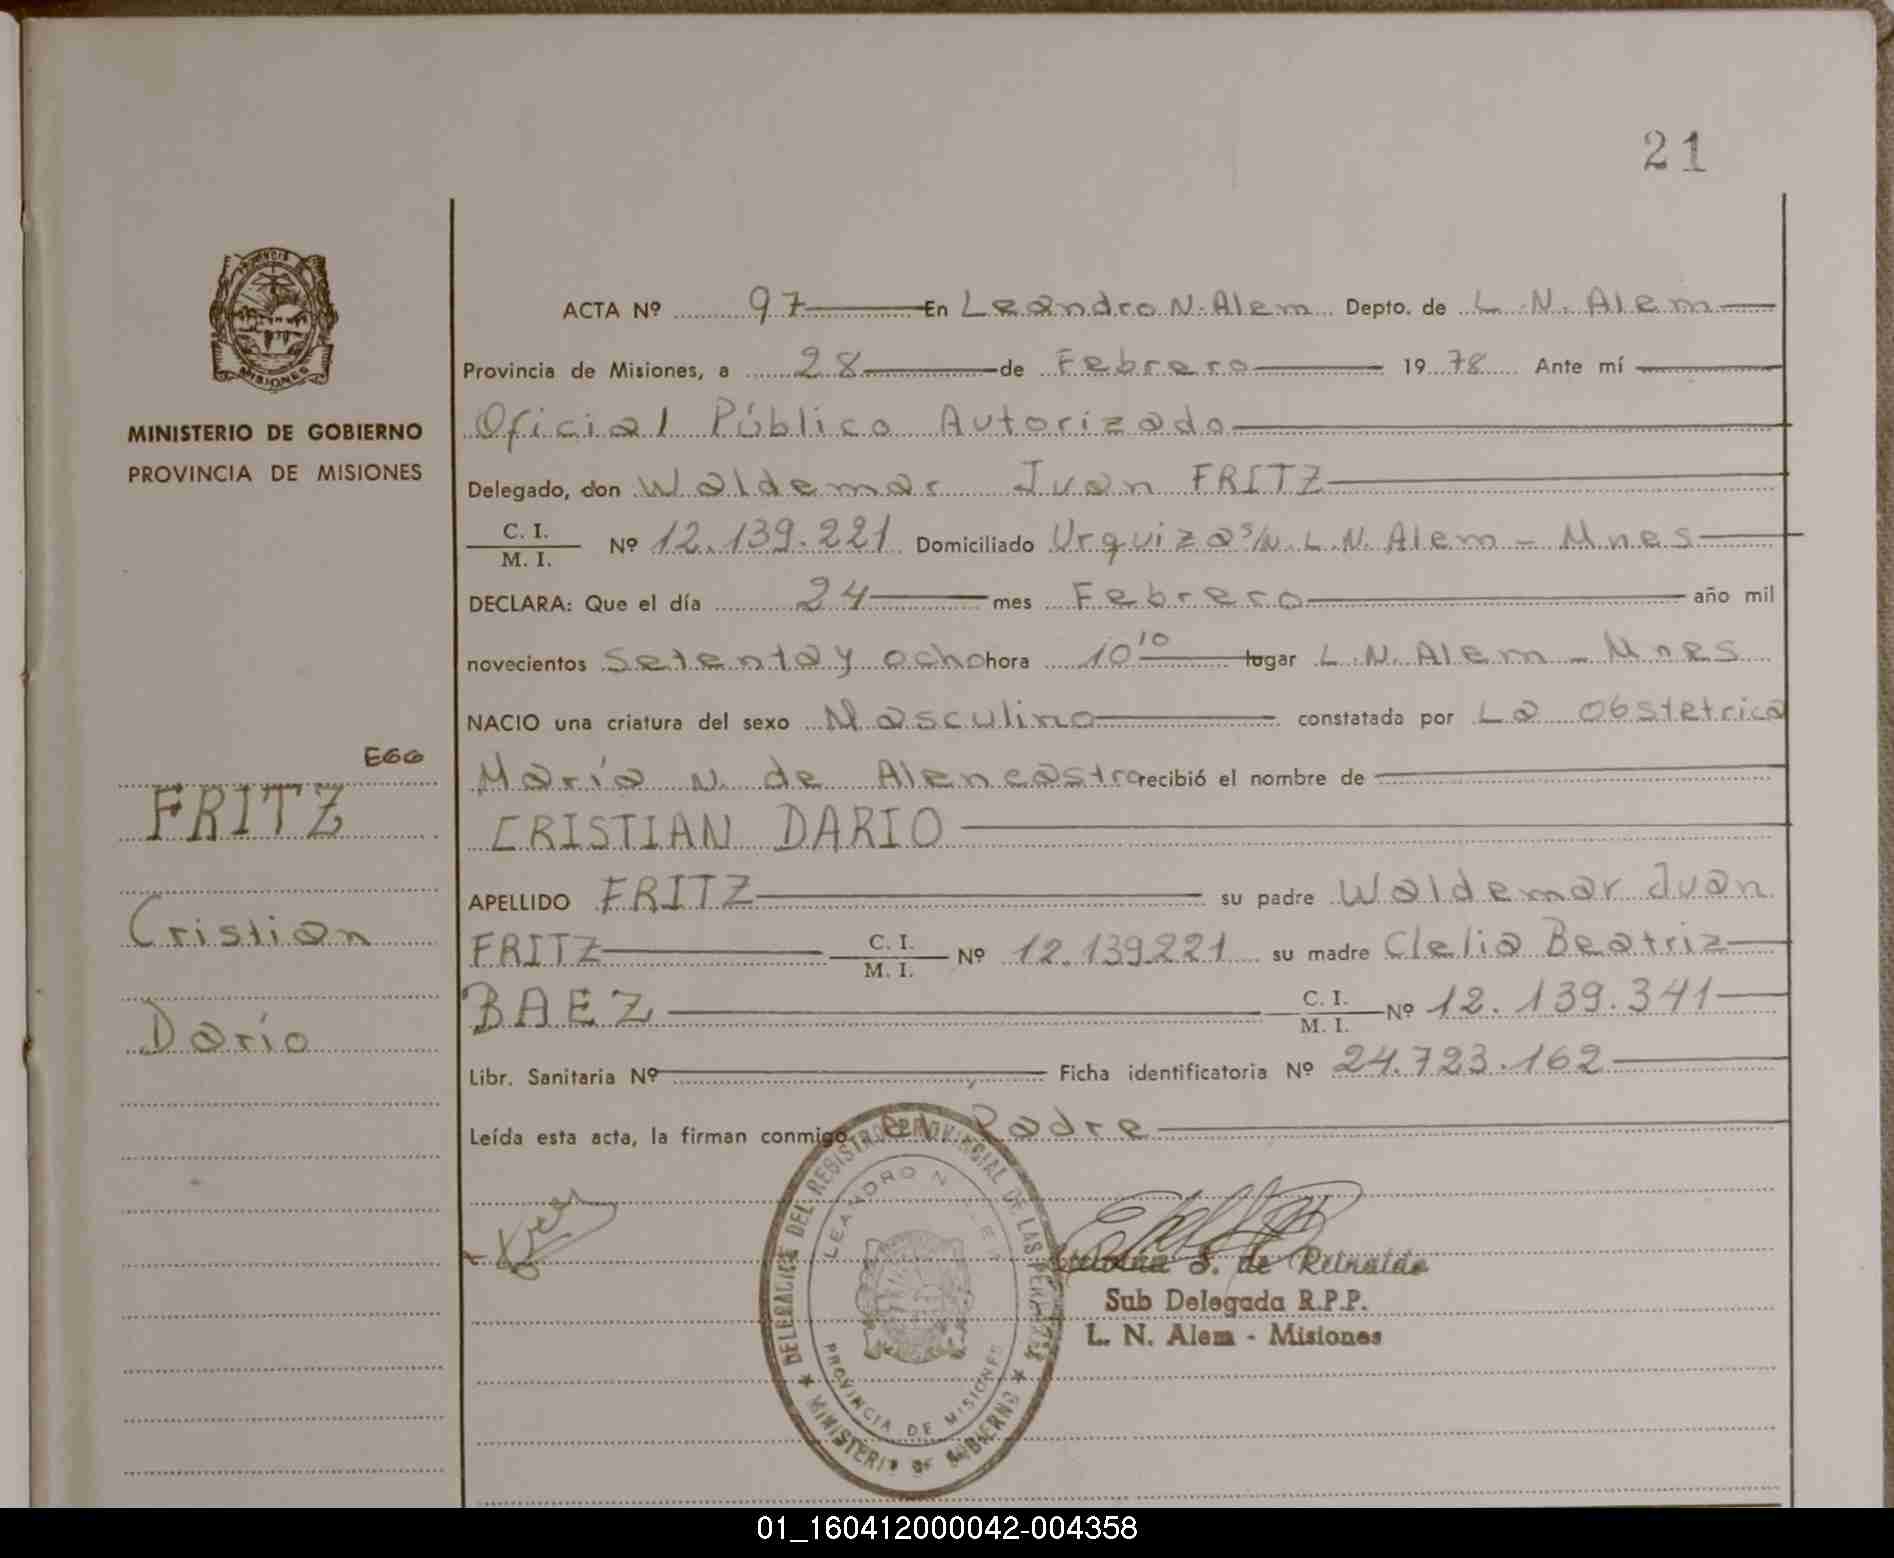 21
PROVINCIA DE
MISIONES
MINISTERIO DE GOBIERNO
PROVINCIA DE MISIONES
EGG
FRITZ
Cristian
Dario
ACTA Nº 97 En Leandro N. Alem Depto. de L. N. Alem
Provincia de Misiones, a 28 de Febrero 19 78 Ante mí
Oficial Público Autorizado
Delegado, don Waldemar Juan FRITZ
C. I.
M. I. Nº 12.139.221 Domiciliado Urquiza s/N. L. N. Alem - Mnes
DECLARA: Que el día 24 mes Febrero año mil
novecientos Setenta y ocho hora 10 10 lugar L. N. Alem - Mnes
NACIO una criatura del sexo Masculino constatada por La Obstetrica
María N. de Alencastro recibió el nombre de
CRISTIAN DARIO
APELLIDO FRITZ su padre Waldemar Juan
FRITZ C. I.
M. I. Nº 12.139221 su madre Clelia Beatriz
BAEZ C. I.
M. I. Nº 12.139.341
Libr. Sanitaria Nº Ficha identificatoria Nº 24.723.162
Leída esta acta, la firman conmigo el Padre
DELEGACION DEL REGISTRO PROVINCIAL DE LAS PERSONAS
LEANDRO N. ALEM
PROVINCIA DE MISIONES
MINISTERIO DE GOBIERNO
S. de Reinaldo
Sub Delegada R.P.P.
L. N. Alem - Misiones
01_160412000042-004358